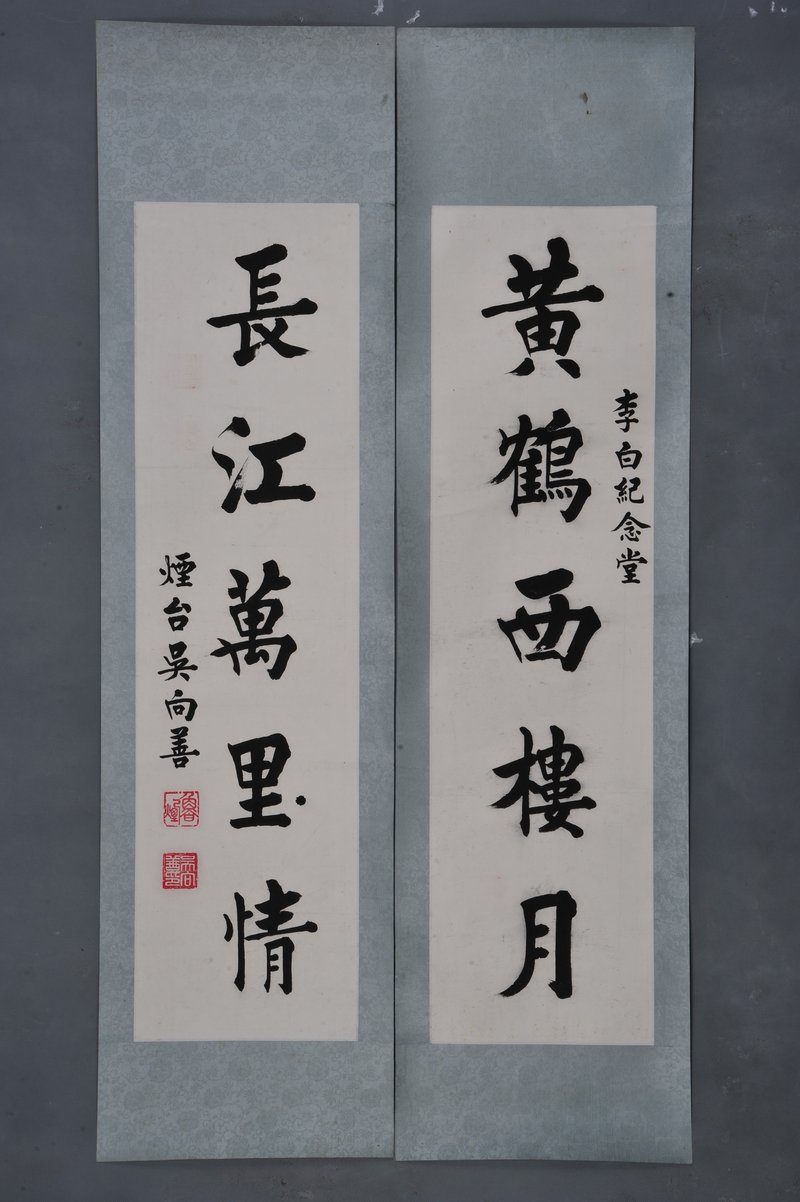 李白紀念堂
黃鶴西樓月
長江萬里情
煙台吳向善